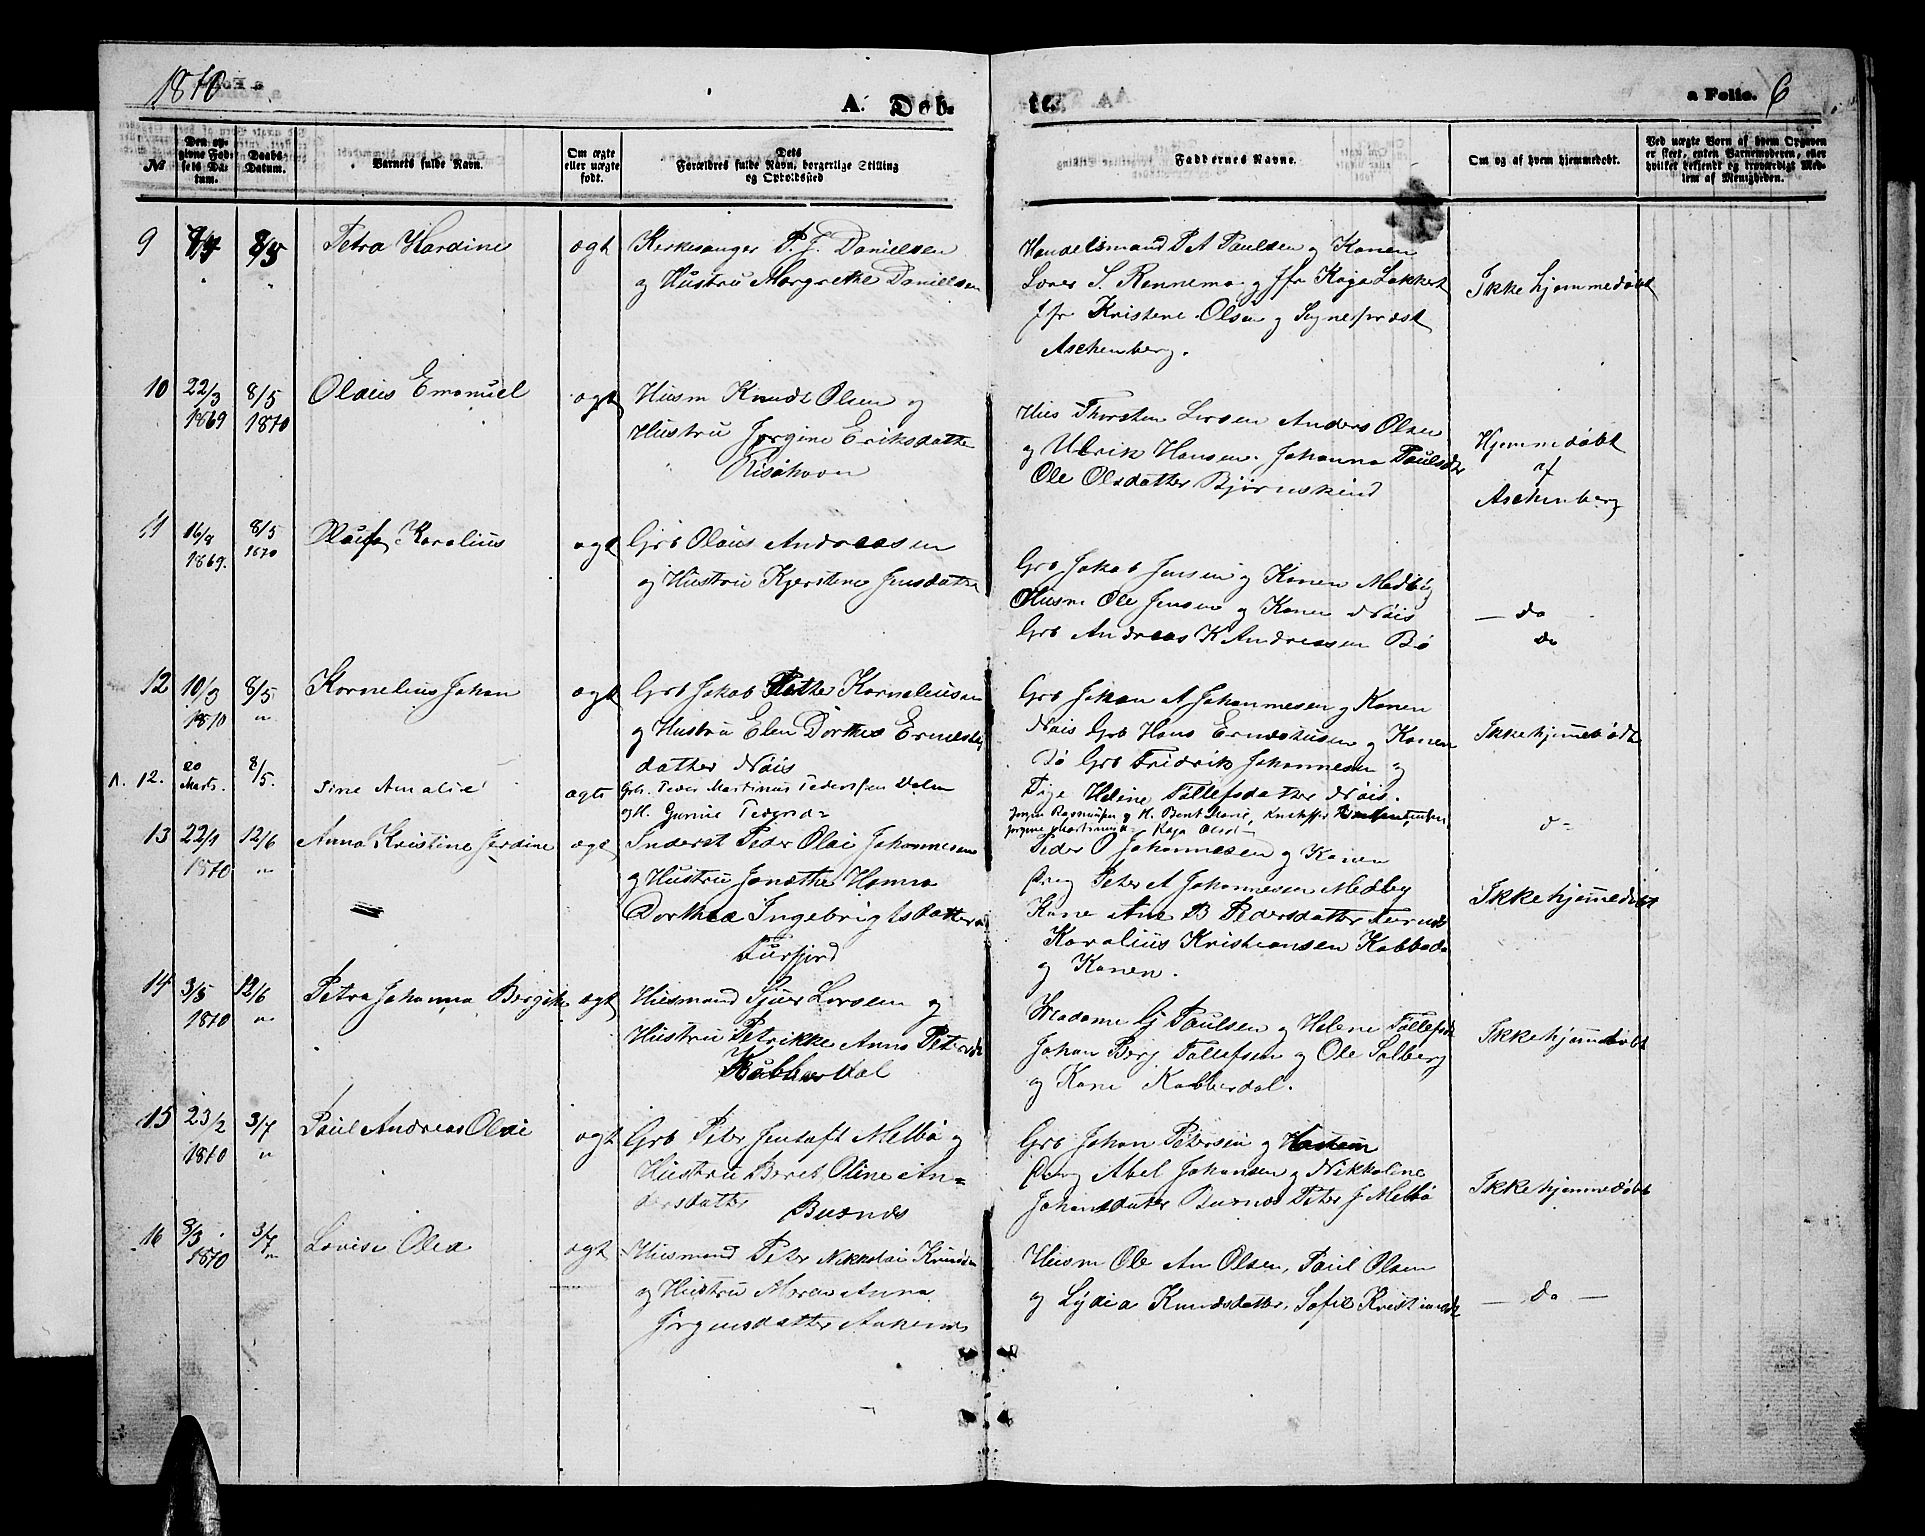 1870
A. Døb-
te.
a Folio. 6
№
Den opgivne Fødsels Datum.
Daabs Datum.
Barnets fulde Navn.
Om ægte eller uægte født.
Dets Forældres fulde Navn, borgerlige Stilling og Opholdssted
Faddernes Navne.
Om og af hvem hjemmedøbt.
Ved uægte Børn af hvem Opgiven er skeet, enten Barnemoderen, eller hvilket bekjendt og troværdigt Medlem af Menigheden.
9 8/5 Petra Hardine ægt Kirkesanger P. J. Danielsen
og Hustru Margrethe Danielsen
Handelsmand P A Paulsen og Konen
Lærer S. Rennemo og Jfr Kaja Lokkert
Jfr Kristine Olsen og Sognepræst
Aschenberg.
Ikke hjemmedøbt
10 22/3 1869 8/5 1870 Olaus Emanuel ægt Husm Knudt Olsen og
Hustru Jørgine Eriksdatter
Risøhavn
Hus Thorsten Larsen Anders Olsen
og Ulrik Hansen. Johanna Paulsdtr
Ole Olsdatter Bjørnskind
Hjemmedøbt
af
Aschenberg
11 16/8 1869. 8/5 1870 Karolius ægt Grb Olaus Andreasen
og Hustru Kjerstine Jensdatter
Grb Jakob Jensen og Konen Medby
Husm Ole Jensen og Konen Nøis
Grb Andreas K Andreasen Bø
— do —
do
12 10/3 1870 8/5 " Kornelius Johan ægt Grb Jakob Pether Korneliusen
og Hustru Elen Dorthea Ernsts
datter Nøis
Grb Johan A Johannesen og Konen
Nøis Grb Hans Ernsthusen og Konen
Bø Grb Fridrik Johannesen og
Pige Helene Tollefsdatter Nøis.
Ikke hjemmedøbt
n. 12. 20 Marts. 8/5. Sine Amalie ægte Grb. Peder Martinus Pedersen Dalen
og H. Gurine Pedersd=
Jørgen Rasmussen og H. Berit Marie,
Kaja Olsd
d=
13 22/4 1870 12/6 " Anna Kristine Jordine ægt Inderst Peder Olai Johannesen
og Hustru Jonathe Hanna
Dorthea Ingebrigtsdatter
Buefjord
Peder O Johannesen og Konen
Dreng Peter A Johannesen Medby
Kone Ane B Pedersdatter
Karolius Kristiansen Kobbedal
og Konen.
Ikke hjemmedøbt
14 3/5 1870 12/6 " Petra Johanna Bergitte ægt Husmand Sjuer Larsen og
Hustru Petrikke Anna Petersdtr
Kobberdal
Madame G Paulsen og Helene Tollefsd
Johan Berg Tollefsen og Ole Solberg
og Kone Kobberdal.
Ikke hjemmedøbt
15 23/2 1870 3/7 " Paul Andreas Olai ægt Grb Peter Jentoft Melbø og
Hustru Beret Oline An=
dersdatter Buknes
Grb Johan Petersen og
Dreng Abel Johansen og Nikkoline
Johansdatter Buknes Peter J Melbø
Ikke hjemmedøbt
16 8/3 1870 3/7 " Lovise Olea ægt Husmand Peter Nikkolai Knudsen
og Hustru Maren Anna
Jørgensdatter Aaknes
Husm Ole An Olsen, Paul Olsen
og Lydia Knudsdatter, Sofie Kristiansdtr
— do —